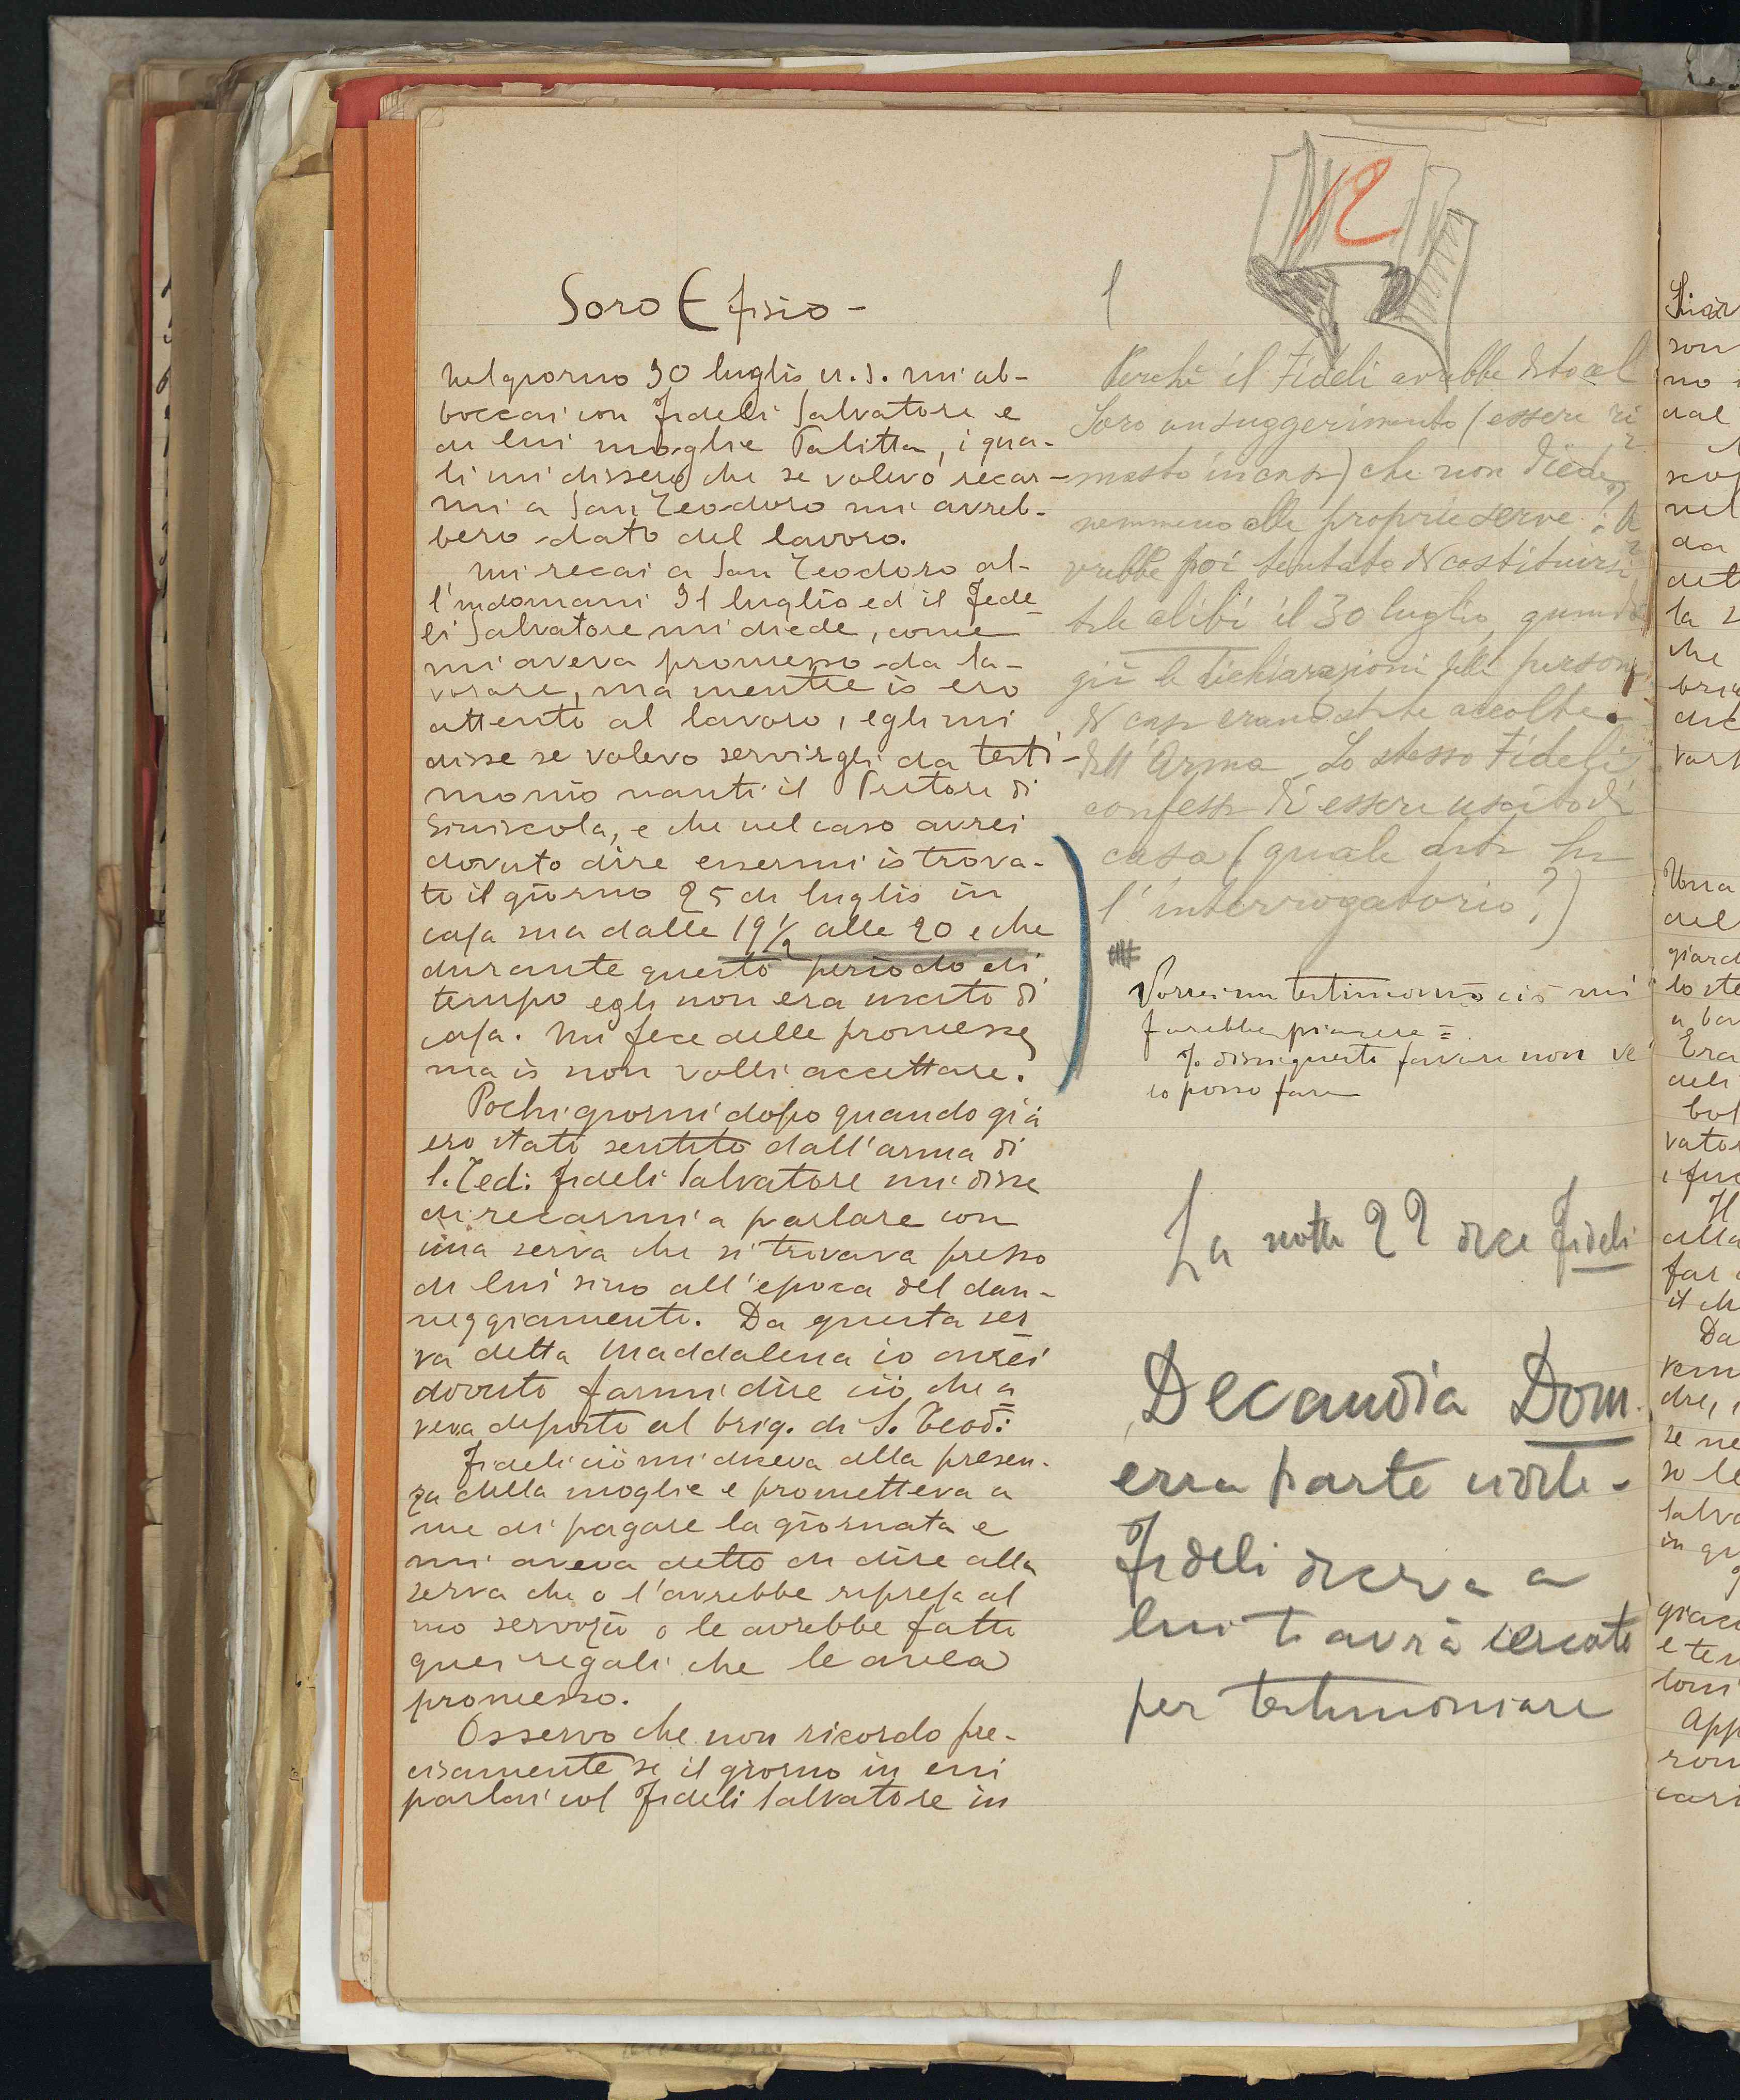 12
Soro Efisio -
Nel giorno 30 luglio u. s. mi ab-
boccai con Fideli Salvatore e
di lui moglie Talitta, i qua-
li mi dissero che se volevo recar-
mi a San Teodoro mi avreb-
bero dato del lavoro.
Mi recai a San Teodoro al-
l'indomani 31 luglio ed il Fide
li Salvatore mi diede, come
mi aveva promesso da la-
vorare, ma mentre io ero
attento al lavoro, egli mi
disse se volevo servirgli da testi-
monio nanti il Pretore di
Siniscola, e che nel caso avrei
dovuto dire essermi io trova-
to il giorno 25 di luglio in
casa sua dalle 19 1/2 alle 20 e che
durante questo periodo di
tempo egli non era uscito di
casa. Mi fece delle promesse
ma io non volli accettare.
Pochi giorni dopo quando già
ero stato sentito dall'arma di
S. Ted: Fideli Salvatore mi disse
di recarmi a parlare con
una serva che si trovava presso
di lui sino all'epoca del dan-
neggiamento. Da questa ser
va detta Maddalena io avrei
dovuto farmi dire ciò che a
veva deposto al brig. di S. Teod:
Fideli ciò mi diceva alla presen-
za della moglie e prometteva a
me di pagare la giornata e
mi aveva detto di dire alla
serva che o l'avrebbe ripresa al
suo servizio o le avrebbe fatto
quei regali che le avea
promesso.
Osservo che non ricordo pre-
cisamente se il giorno in cui
parlai col Fideli Salvatore in
Perché il Fideli avrebbe dato al
Soro un suggerimento (essere ri
masto in casa) che non diede
nemmeno alle proprie serve? A
vrebbe poi tentato di costituirsi
tale alibi il 30 luglio, quando
già le dichiarazioni delle persone
di casa erano state accolte
dall'Arma. Lo stesso Fideli
confessa di essere uscito di
casa (quale data ha
l'interrogatorio?)
Vorrei un testimonio ciò mi
farebbe piacere =
Io dissi questo favore non ve
lo posso fare
La notte 22 dice Fideli
Decandia Dom.
era parte
Fideli diceva a
lui ti avrà cercato
per testimoniare